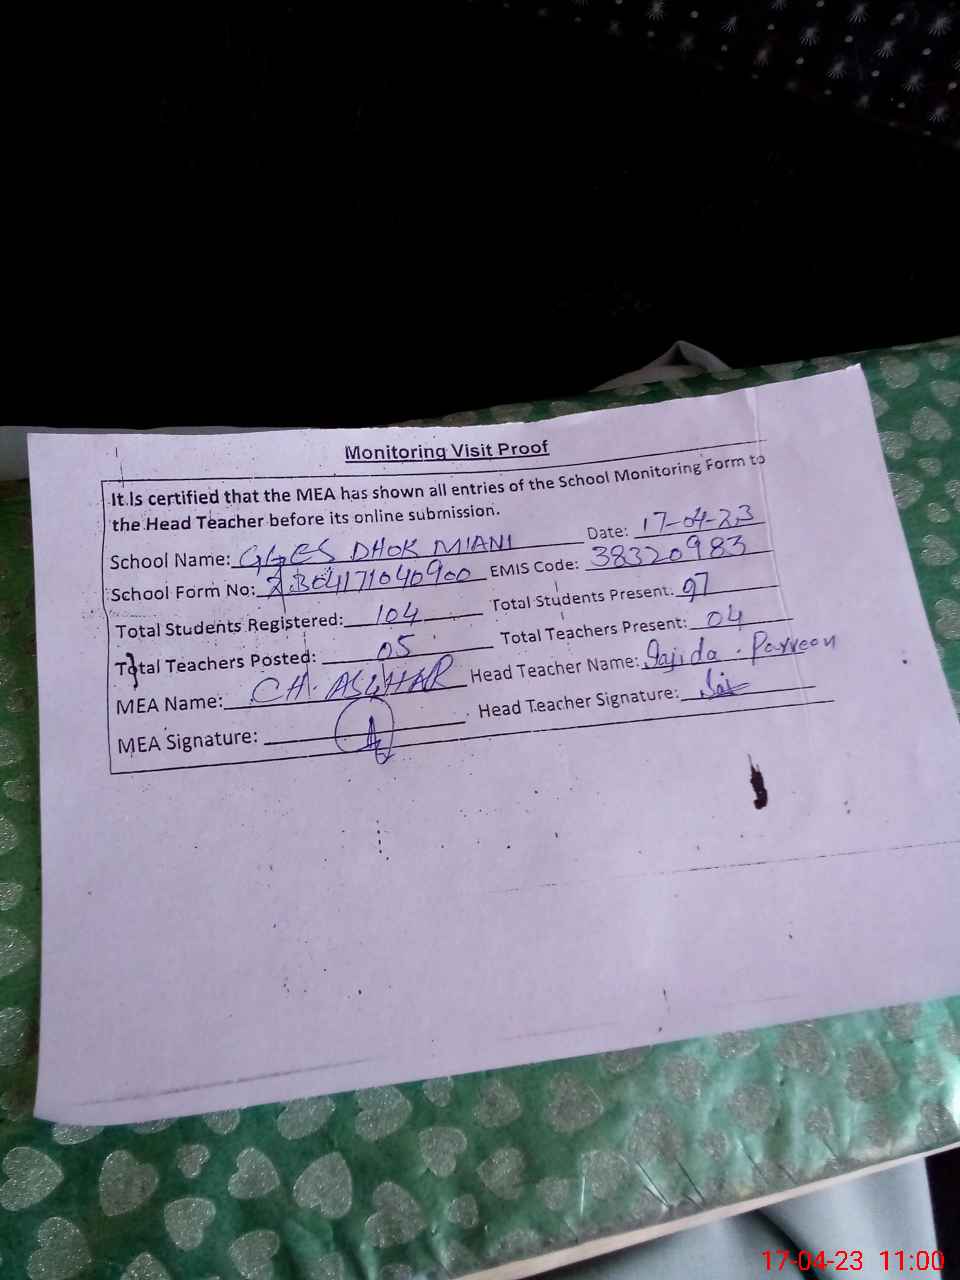 Monitoring Visit Proof
It Is certified that the MEA has shown all entries of the School Monitoring Form to
the Head Teacher before its online submission.
School Name: GGES DHOK MIANI Date: 17-04-23
School Form No: 2304171040900 EMIS Code: 38320983
Total Students Registered: 104 Total Students Present: 97
Total Teachers Posted: 05 Total Teachers Present: 04
MEA Name: CH. ASGHAR Head Teacher Name: Sajida . Parveen
MEA Signature: Head Teacher Signature:
17-04-23 11:00